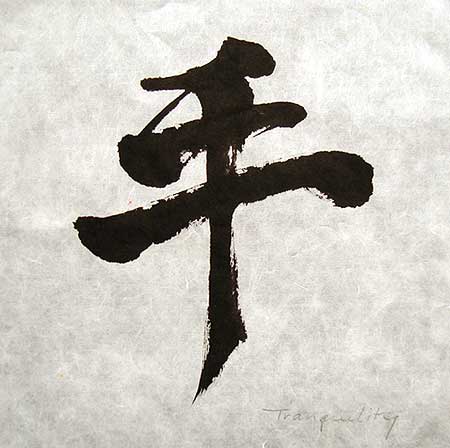 平
Tranquility